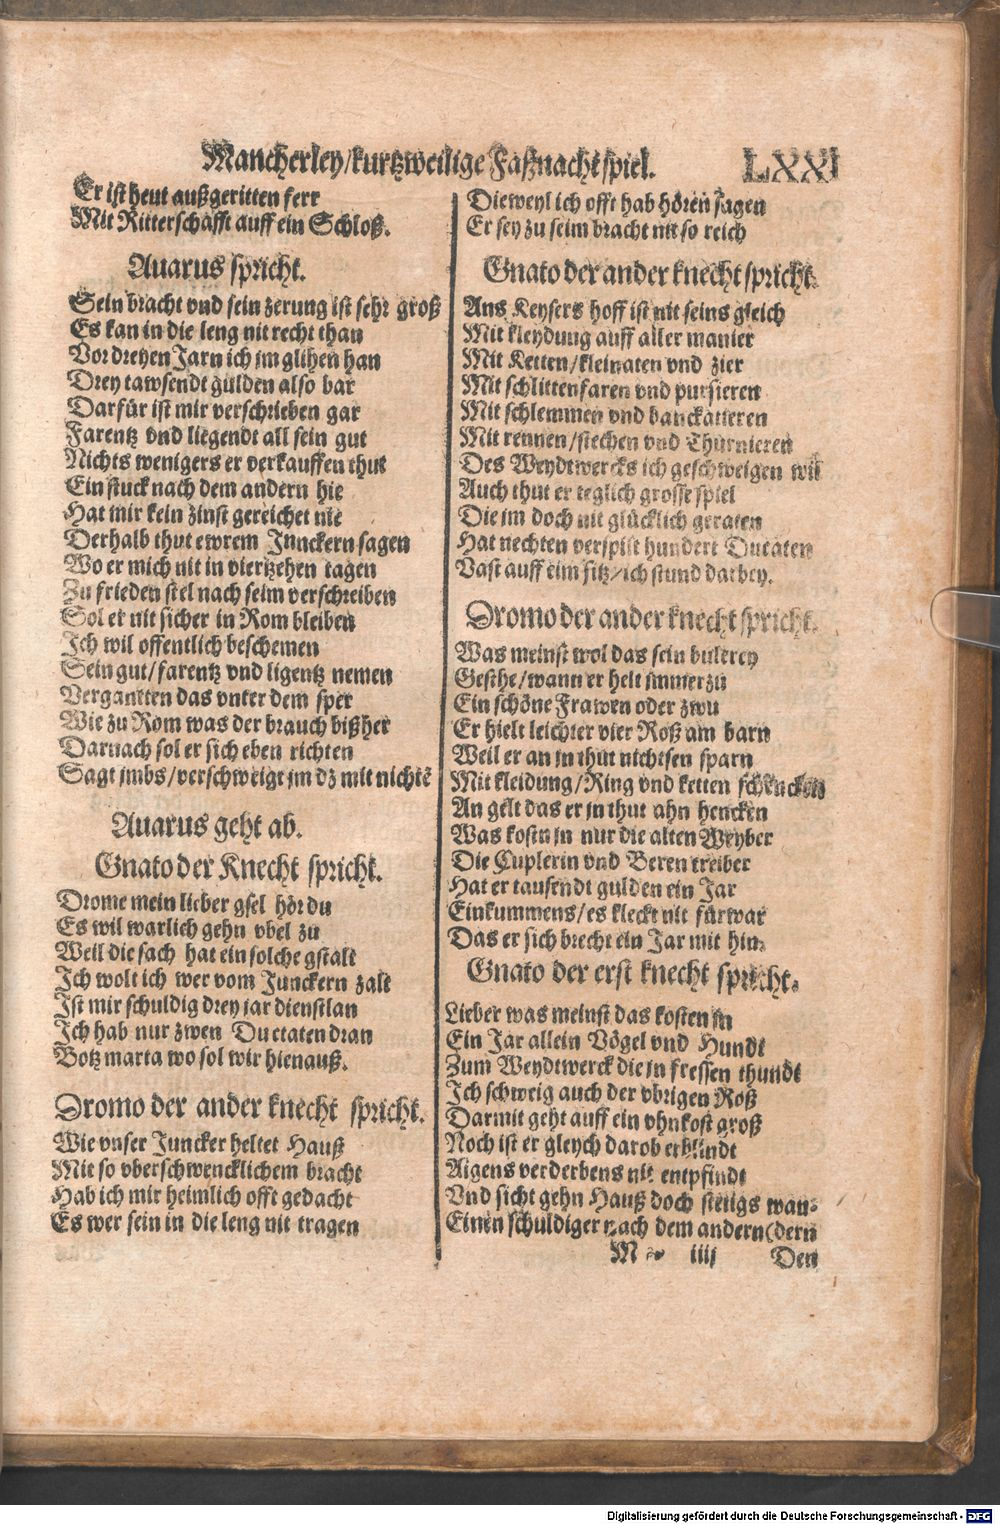 Mancherley/kurtzweilige Faßnachtspiel. LXXI
Er ist heut außgeritten ferr
Mit Ritterschafft auff ein Schloß.
Auarus spricht.
Sein bracht vnd sein zerung ist sehr groß
Es kan in die leng nit recht than
Vor dreyen Jarn ich jm glihen han
Drey tawsendt gülden also bar
Darfür ist mir verschrieben gar
Farentz vnd liegendt all sein gut
Nichts wenigers er verkauffen thut
Ein stuck nach dem andern hie
Hat mir kein zinst gereichet nie
Derhalb thut ewrem Junckern sagen
Wo er mich nit in viertzehen tagen
Zu frieden stel nach seim verschreiben
Sol er nit sicher in Rom bleiben
Ich wil offentlich beschemen
Sein gut/farentz vnd ligentz nemen
Vergantten das vnter dem sper
Wie zu Rom was der brauch bißher
Darnach sol er sich eben richten
Sagt jmbs/verschweigt jm dz mit nichtē
Auarus geht ab.
Gnato der Knecht spricht.
Drome mein lieber gsel hör du
Es wil warlich gehn vbel zu
Weil die sach hat ein solche gstalt
Ich wolt ich wer vom Junckern zalt
Ist mir schuldig drey jar dienstlan
Ich hab nur zwen Ductaten dran
Botz marta wo sol wir hienauß.
Dromo der ander knecht spricht.
Wie vnser Juncker heltet Hauß
Mit so vberschwencklichem bracht
Hab ich mir heimlich offt gedacht
Es wer sein in die leng nit tragen
Dieweyl ich offt hab hören sagen
Er sey zu seim bracht nit so reich
Gnato der ander knecht spricht.
Ans Keysers hoff ist nit seins gleich
Mit kleydung auff aller manier
Mit Ketten/kleinaten vnd zier
Mit schlittenfaren vnd pursieren
Mit schlemmen vnd banckatieren
Mit rennen/stechen vnd Thurnieren
Des Weydtwercks ich geschweigen wil
Auch thut er teglich grosse spiel
Die jm doch nit glücklich geraten
Hat nechten verspilt hundert Ducaten
Vast auff eim sitz/ich stund darbey.
Dromo der ander knecht spricht.
Was meinst wol das sein bulerey
Gesthe/wann er helt jmmerzu
Ein schöne Frawen oder zwu
Er hielt leichter vier Roß am barn
Weil er an jn thut nichtsen sparn
Mit kleidung/Ring vnd ketten schencken
An gelt das er jn thut ahn hencken
Was kostn jn nur die alten Weyber
Die Cuplerin vnd Beren treiber
Hat er tausendt gulden ein Jar
Einkummens/es kleckt nit fürwar
Das er sich brecht ein Jar mit hin.
Gnato der erst knecht spricht.
Lieber was meinst das kosten jn
Ein Jar allein Vögel vnd Hundt
Zum Weydtwerck die jn fressen thundt
Ich schweig auch der vbrigen Roß
Darmit geht auff ein vhnkost groß
Noch ist er gleych darob erblindt
Aigens verderbens nit entpfindt
Vnd sicht gehn Hauß doch stetigs wan-
Einen schuldiger nach dem andern (dern
M iiij Den
Digitalisierung gefördert durch die Deutsche Forschungsgemeinschaft - DFG